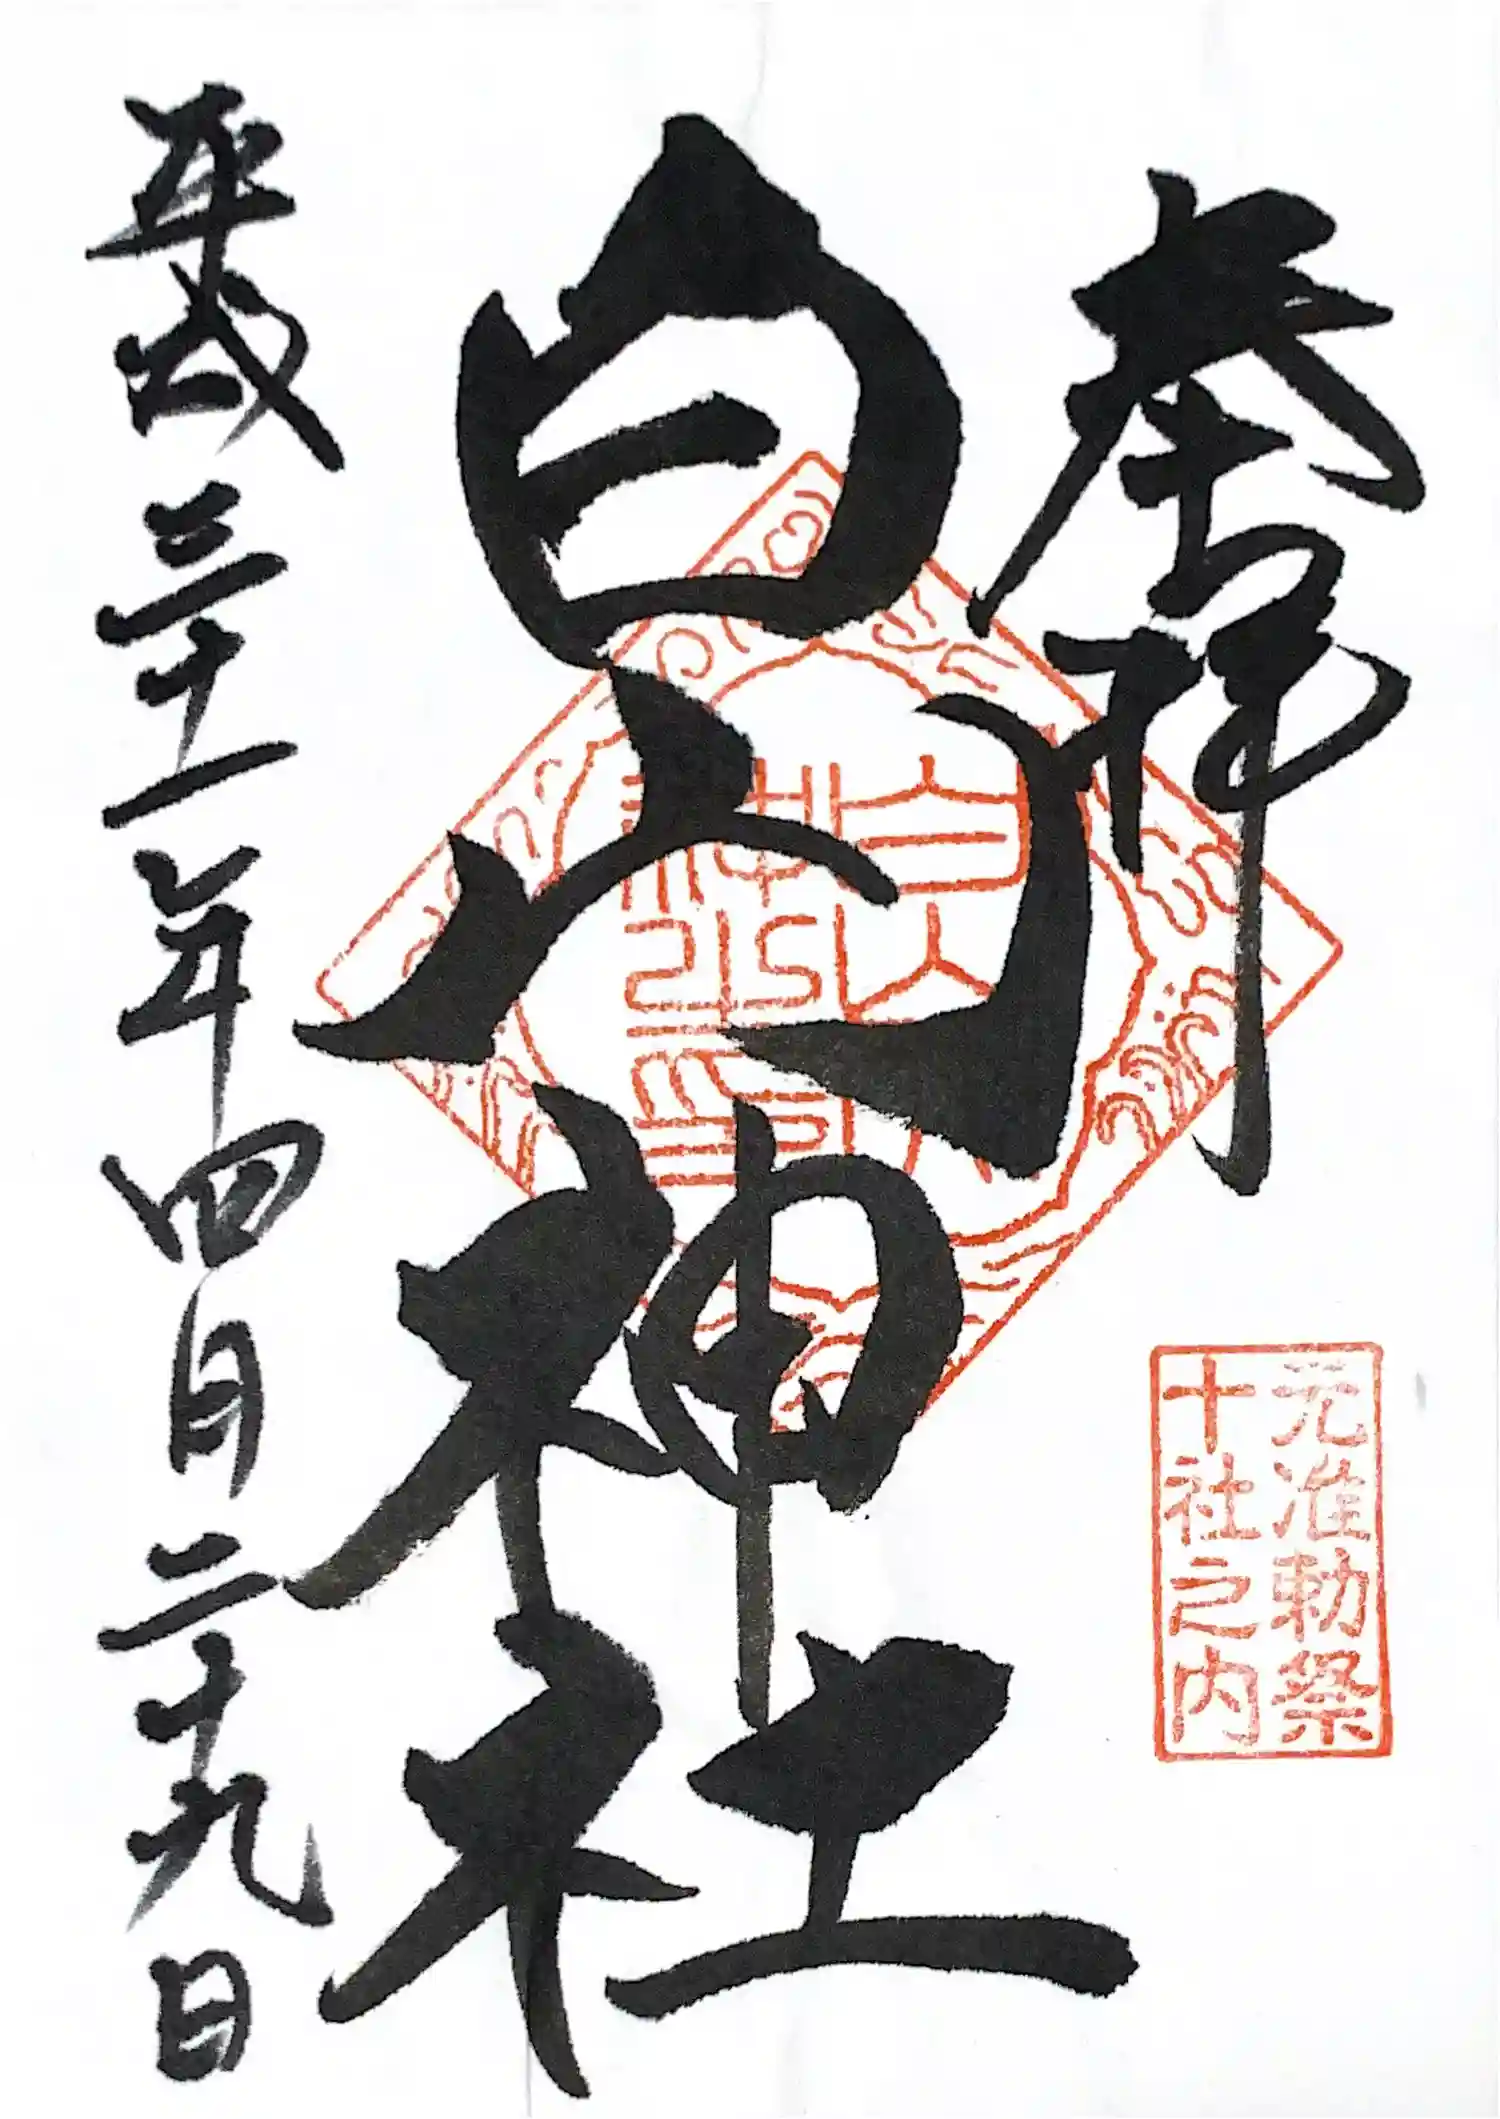 奉拝
元准勅祭
十社之内
白山神社
白山神社
平成三十一年四月二十九日